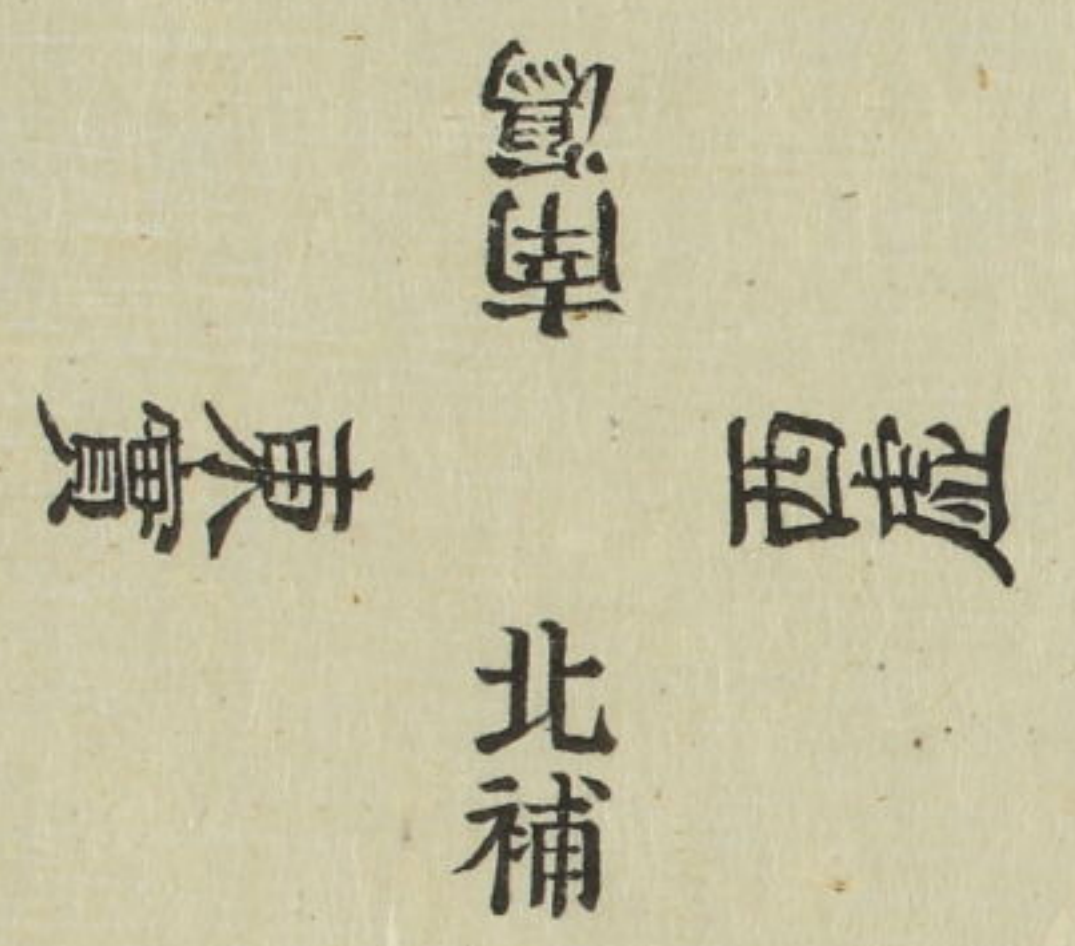 南瀉
東實
西虛
北補